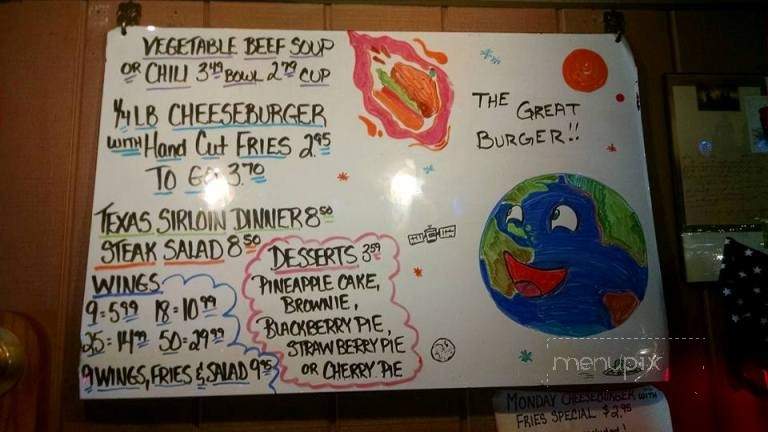 VEGETABLE BEEF SOUP
OR CHILI 3.49 BOWL 2.79 CUP
1/4 LB CHEESEBURGER
WITH Hand Cut FRIES 2.95
TO GO 3.70
TEXAS SIRLOIN DINNER 8.50
STEAK SALAD 8.50
WINGS
9=5.99 18=10.99
25=14.99 50=29.99
9 WINGS, FRIES & SALAD 9.95
DESSERTS 3.59
PINEAPPLE CAKE,
BROWNIE,
BLACKBERRY PIE,
STRAWBERRY PIE
OR CHERRY PIE
THE GREAT
BURGER!!
menupix
MONDAY CHEESEBURGER WITH
FRIES SPECIAL $2.95